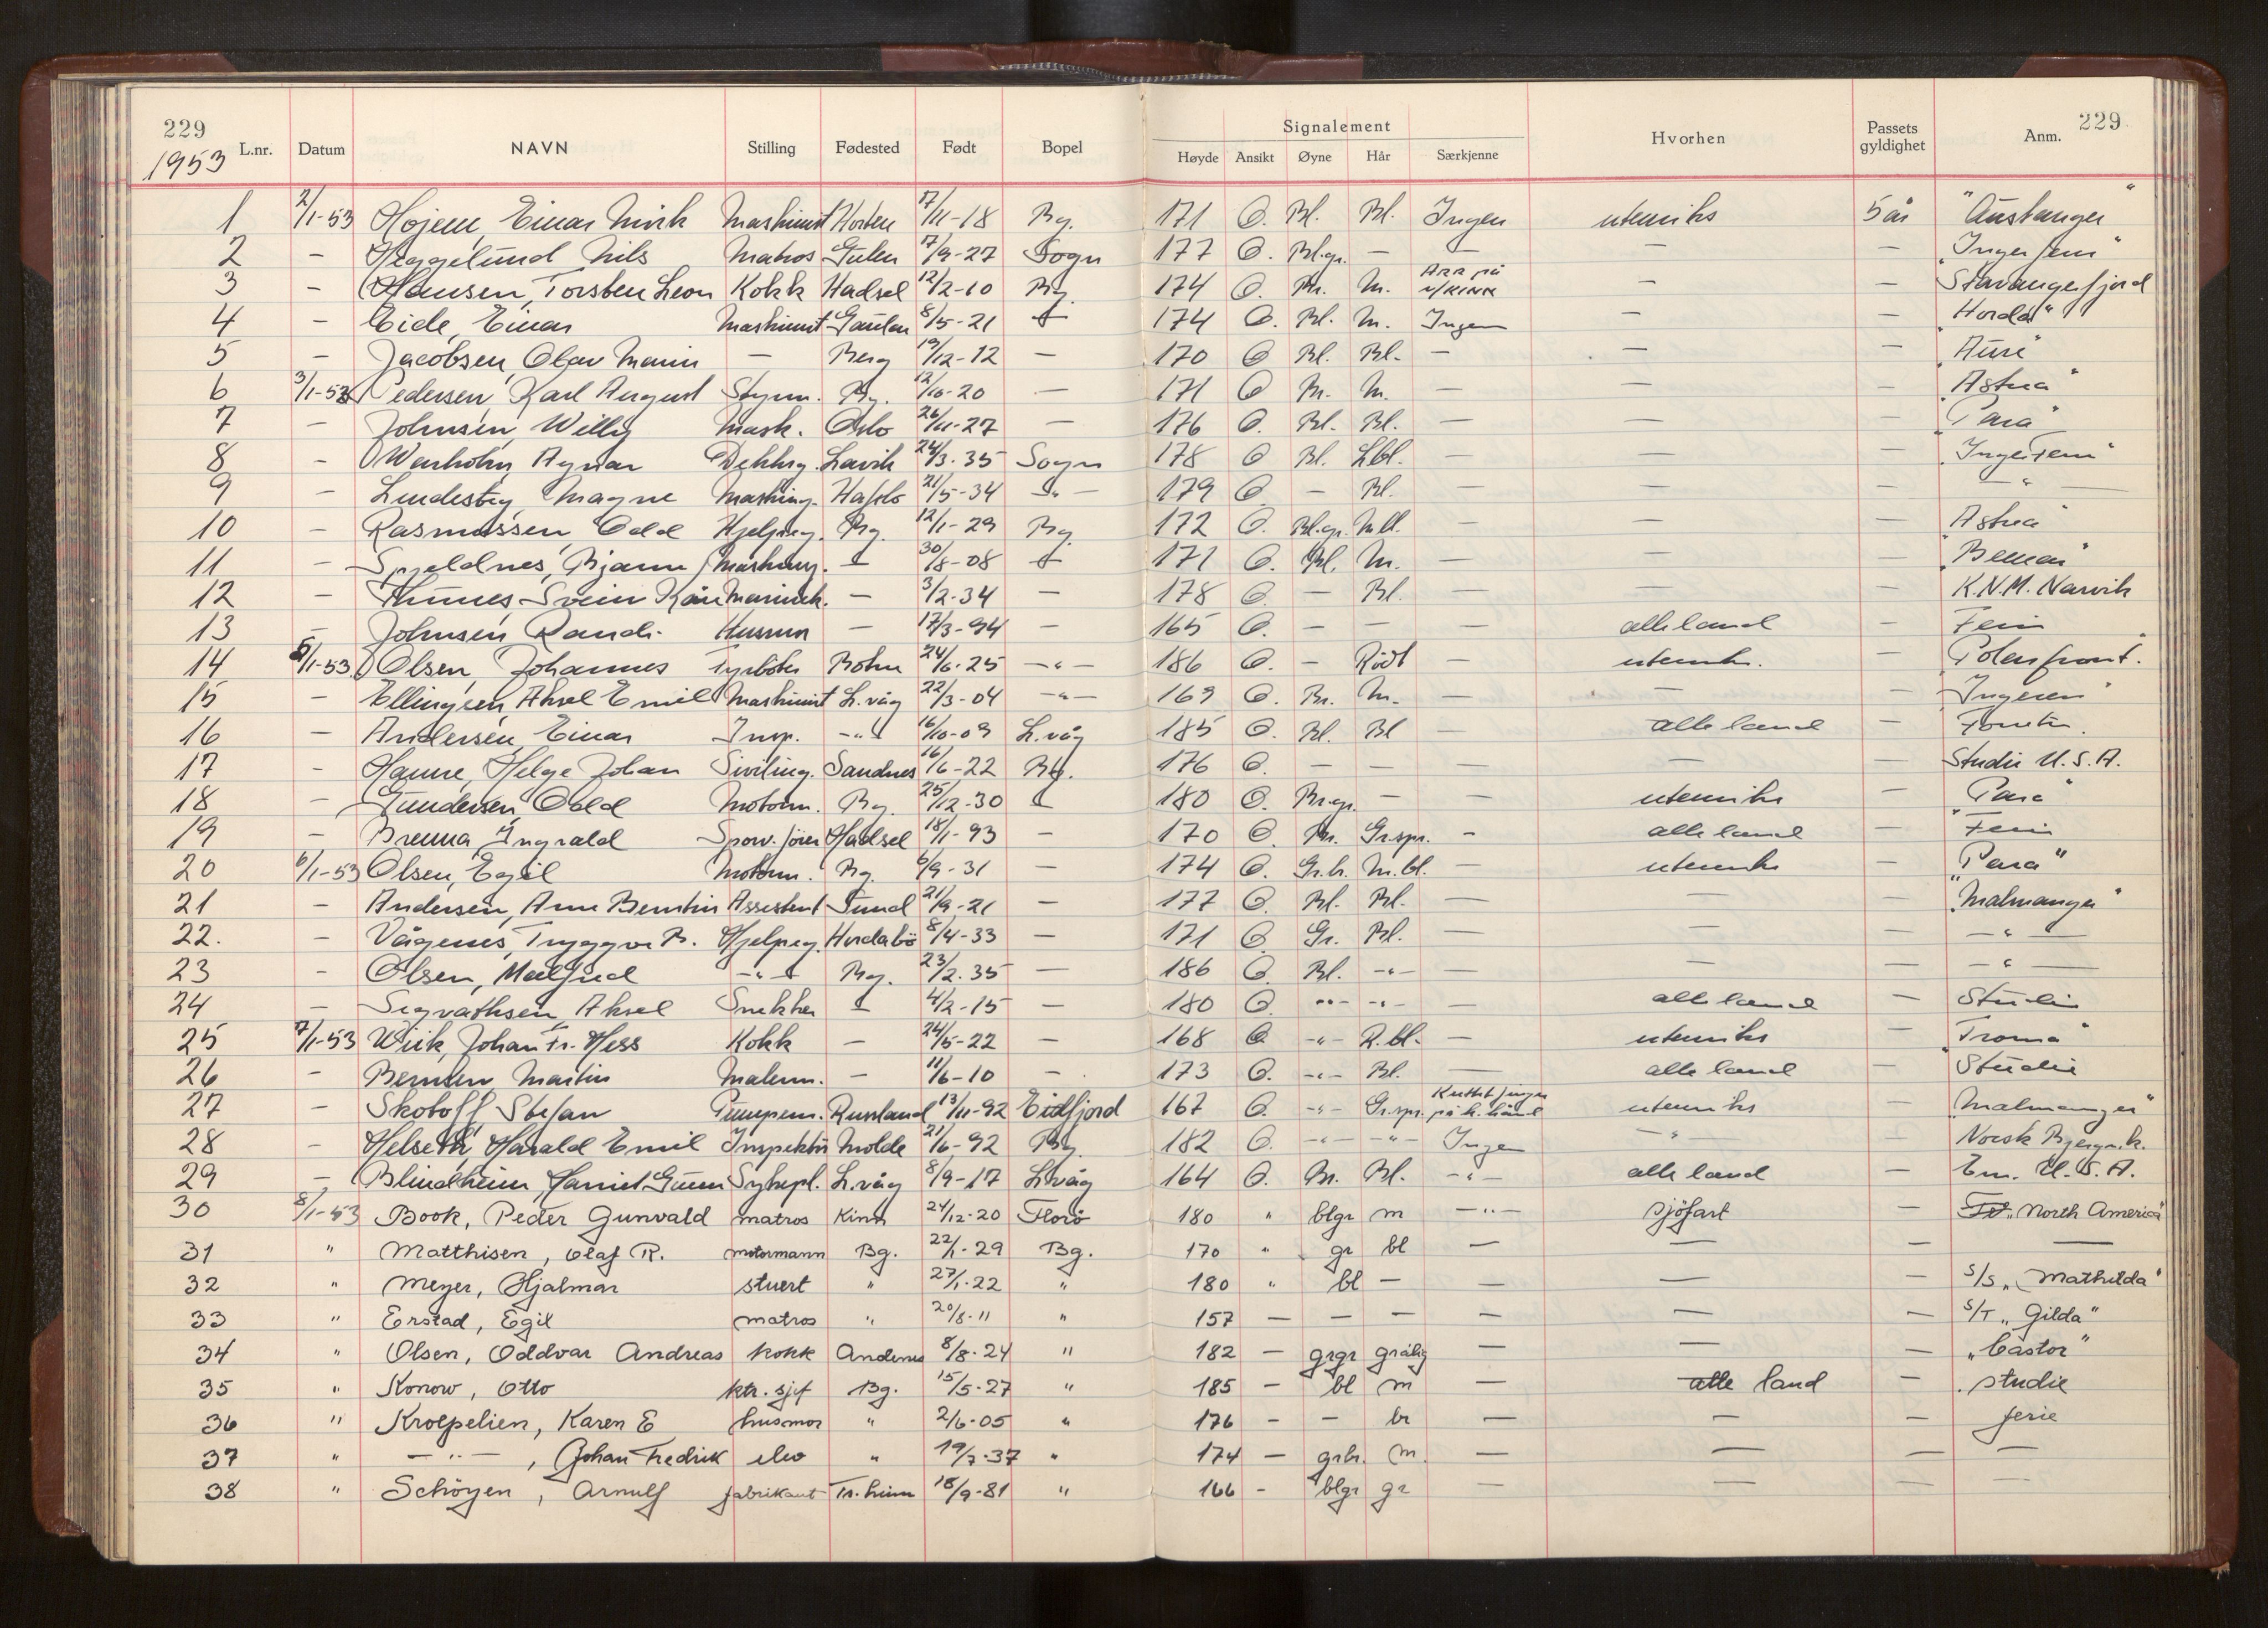 229
229
1953
L.nr. Datum NAVN Stilling Fødested Født Bopel Signalement Hvorhen Passets gyldighet Anm.
Høyde Ansikt Øyne Hår Særkjenne
1 2/1-53 Højem, Einar Maskinist Horten 17/11-18 Bg. 171 O. Bl. Bl. Ingen utenriks 5 år "Austanger"
2 — Heggelund Nils Matros Gulen 17/9-27 Sogn 177 O. Bl.gr. — — — —
3 — Hansen, Torsten Leon Kokk Hadsel 12/2-10 Bg. 174 O. Br. M. Arr på v/kinn — — Stavangerfjord
4 — Eide, Einar Maskinist Gaular 8/5-21 — 174 O. Bl. M. Ingen — — "Horda"
5 — Jacobsen, Olav — Berg 19/12-12 — 170 O Bl. Bl. — — —
6 3/1-53 Pedersen, Karl August Styrm. Bg. 12/10-20 — 171 O Br. M. — — — "Astrea"
7 — Johnsen, Willy Mask. Oslo 26/11-27 — 176 O. Bl. Bl. — — — "Para"
8 — Warholm, Agnar Dekksg. Lavik 24/3-35 Sogn 178 O Bl. Lbl. — — —
9 — Magne Masking. Hafslo 21/5-34 — " — 179 O — Bl. — — — — " —
10 — Rasmussen, Odd Hjelpeg. Bg. 12/1-29 Bg. 172 O. Bl.gr. M.bl. — — — "Astrea"
11 — Spjeldnes, Bjarne — 30/8-08 — 171 O. Bl. M. — — —
12 — Thunes, Svein Kåre Marinek. — 3/2-34 — 178 O. — Bl. — — K.N.M. Narvik
13 — Johnsen, Randi Husmor — 17/3-94 — 165 O. — — — alle land — Ferie
14 5/1-53 Olsen, Johannes Fyrböter 24/6-25 — " — 186 O. — Rödt — utenriks. — "Polarfront".
15 — Ellingsen, Aksel Emil Maskinist L.våg 22/3-04 — " — 169 O. Br. M. — — —
16 — Andersen, Einar — " — 16/10-09 L.våg 185 O. Bl. Bl — alle land —
17 — Hanne, Helge Johan Siviling. Sandnes 16/6-22 Bg. 176 O. — — — — — Studie U.S.A.
18 — Gundersen, Odd Motorm. Bg. 25/12-30 — 180 O. Br.gr. — — utenriks — "Para"
19 — Brenna, Ingvald Hadsel 18/1-93 — 170 O. Br. Gr.spr. — alle land — Ferie
20 6/1-53 Olsen, Egil Motorm. Bg. 6/9-31 — 174 O. Gr.br. M.bl. — utenriks — "Para"
21 — Andersen, Arne Berntin Assistent Sund 21/9-21 — 177 O. Bl. Bl. — — "Malmanger"
22. — Vågenes, Tryggve B. Hjelpeg. Herdabö 8/4-33 — 171 O. Gr. Bl. — — — — " —
23 — Olsen, Malfred — " — Bg. 23/2-35 — 186 O. Bl. — " — — — — — " —
24 — Sigvathsen, Aksel Snekker — 4/2-15 — 180 O. — " — — " — — alle land — Studie
25 7/1-53 Wiik, Johan Fr. Hess Kokk — 24/5-22 — 168 O. — " — R.bl. — utenriks — "Troma"
26 — Berntsen, Martin Malerm. — 11/6-10 — 173 O. — " — Bl. — alle land — Studie
27 — Skoboff Stefan Pumpem. Russland 13/11-92 Eidfjord 167 O. — " — Gr.spr. på h. hånd utenriks — "Malmanger"
28 — Helseth, Harald Emil Inspektör Molde 21/6-92 Bg. 182 O. — " — — " — Ingen — " — — Norsk Bjergn.k.
29 — Blindheim, Harriet Sykepl. L.våg 8/9-17 L.våg 164 O. Br. Bl. — " — alle land — Em. U.S.A.
30 8/1-53 Book, Peder Gunvald matros Kinn 24/12-20 Florö 180 " blgr m — " — sjöfart — "North America"
31 " Matthisen, Olaf R. motormann Bg. 22/1-29 Bg. 170 " gr bl — — — —
32 " Meyer, Hjalmar stuert " 27/1-22 " 180 " bl — — — — S/S "Mathilda"
33 " Erstad, Egil matros " 20/8-11 " 157 — — — — — — S/T "Gilda"
34 " Olsen, Oddvar Andreas kokk Andenes 8/8-24 " 182 — grgr grålig — — — "Castor"
35 " Konow, Otto ktr.sjef Bg. 15/5-27 " 185 — bl m — alle land — studie
36 " Kroepelien, Karen E husmor " 2/6-05 " 176 — — br — — — ferie
37 " — " —, Johan Fredrik elev " 19/7-37 " 174 — grbr. m. — — — —
38 " Schöyen, Arnulf fabrikant Tr.heim 18/9-81 " 166 — blgr gr — — — —